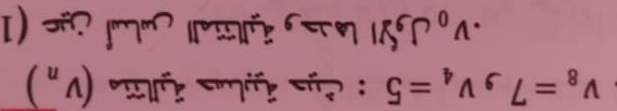 (v_n) متتالية حسابية حيث : v_4=5 و v_8=7.
1) عين أساس المتتالية و حدها الأول v_0.